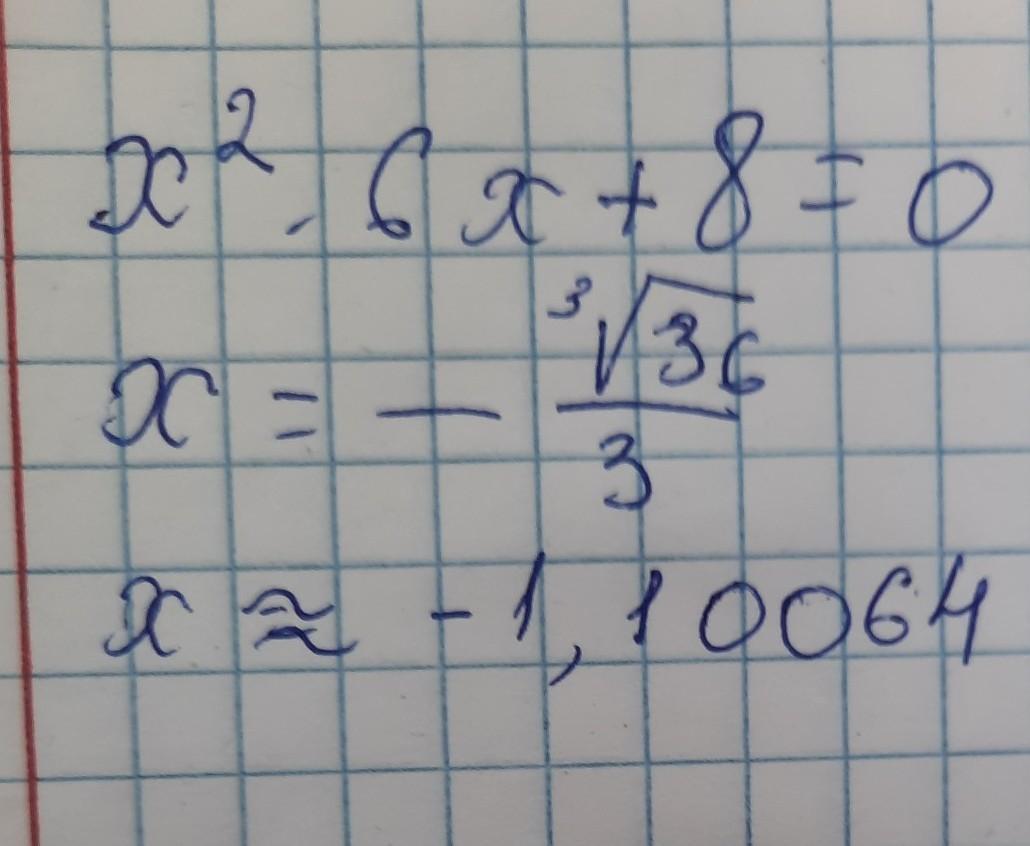 x² · 6x + 8 = 0
x = — ∛36 / 3
x ≈ -1,10064